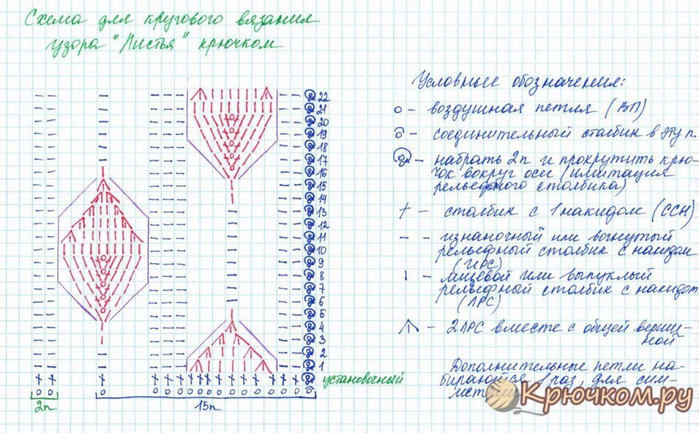 Схема для кругового вязания
узора "Листья" крючком
Условные обозначения:
- воздушная петля (ВП)
- соединительный столбик в эту п.
- набрать 2п и прокрутить крю-
чок вокруг оси (имитация
рельефного столбика)
- столбик с 1 накидом (ССН)
- изнаночный или вогнутый
рельефный столбик с накидом
(ИРС)
- лицевой или выпуклый
рельефный столбик с накидом
(ЛРС)
- 2ЛРС вместе с общей верши-
ной
Дополнительные петли на-
раз, для сим-
22
21
20
19
18
17
16
15
14
13
12
11
10
9
8
7
6
5
4
3
2
1
установочный
2п
15п
Крючком.ру